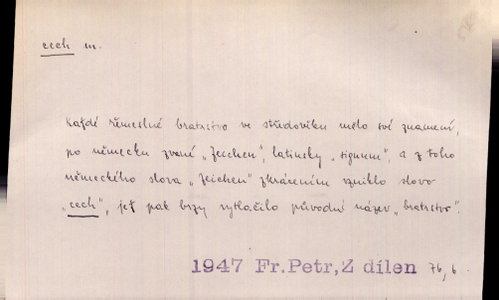 cech m.
Každé řemeslné bratrstvo ve středověku mělo své znamení,
po německu zvané „Zeichen", latinsky „signum", a z toho
německého slova „Zeichen" zkrácením vzniklo slovo
„cech", jež pak brzy vytlačilo původní název „bratrstvo".
1947 Fr. Petr, Z dílen 76, 6